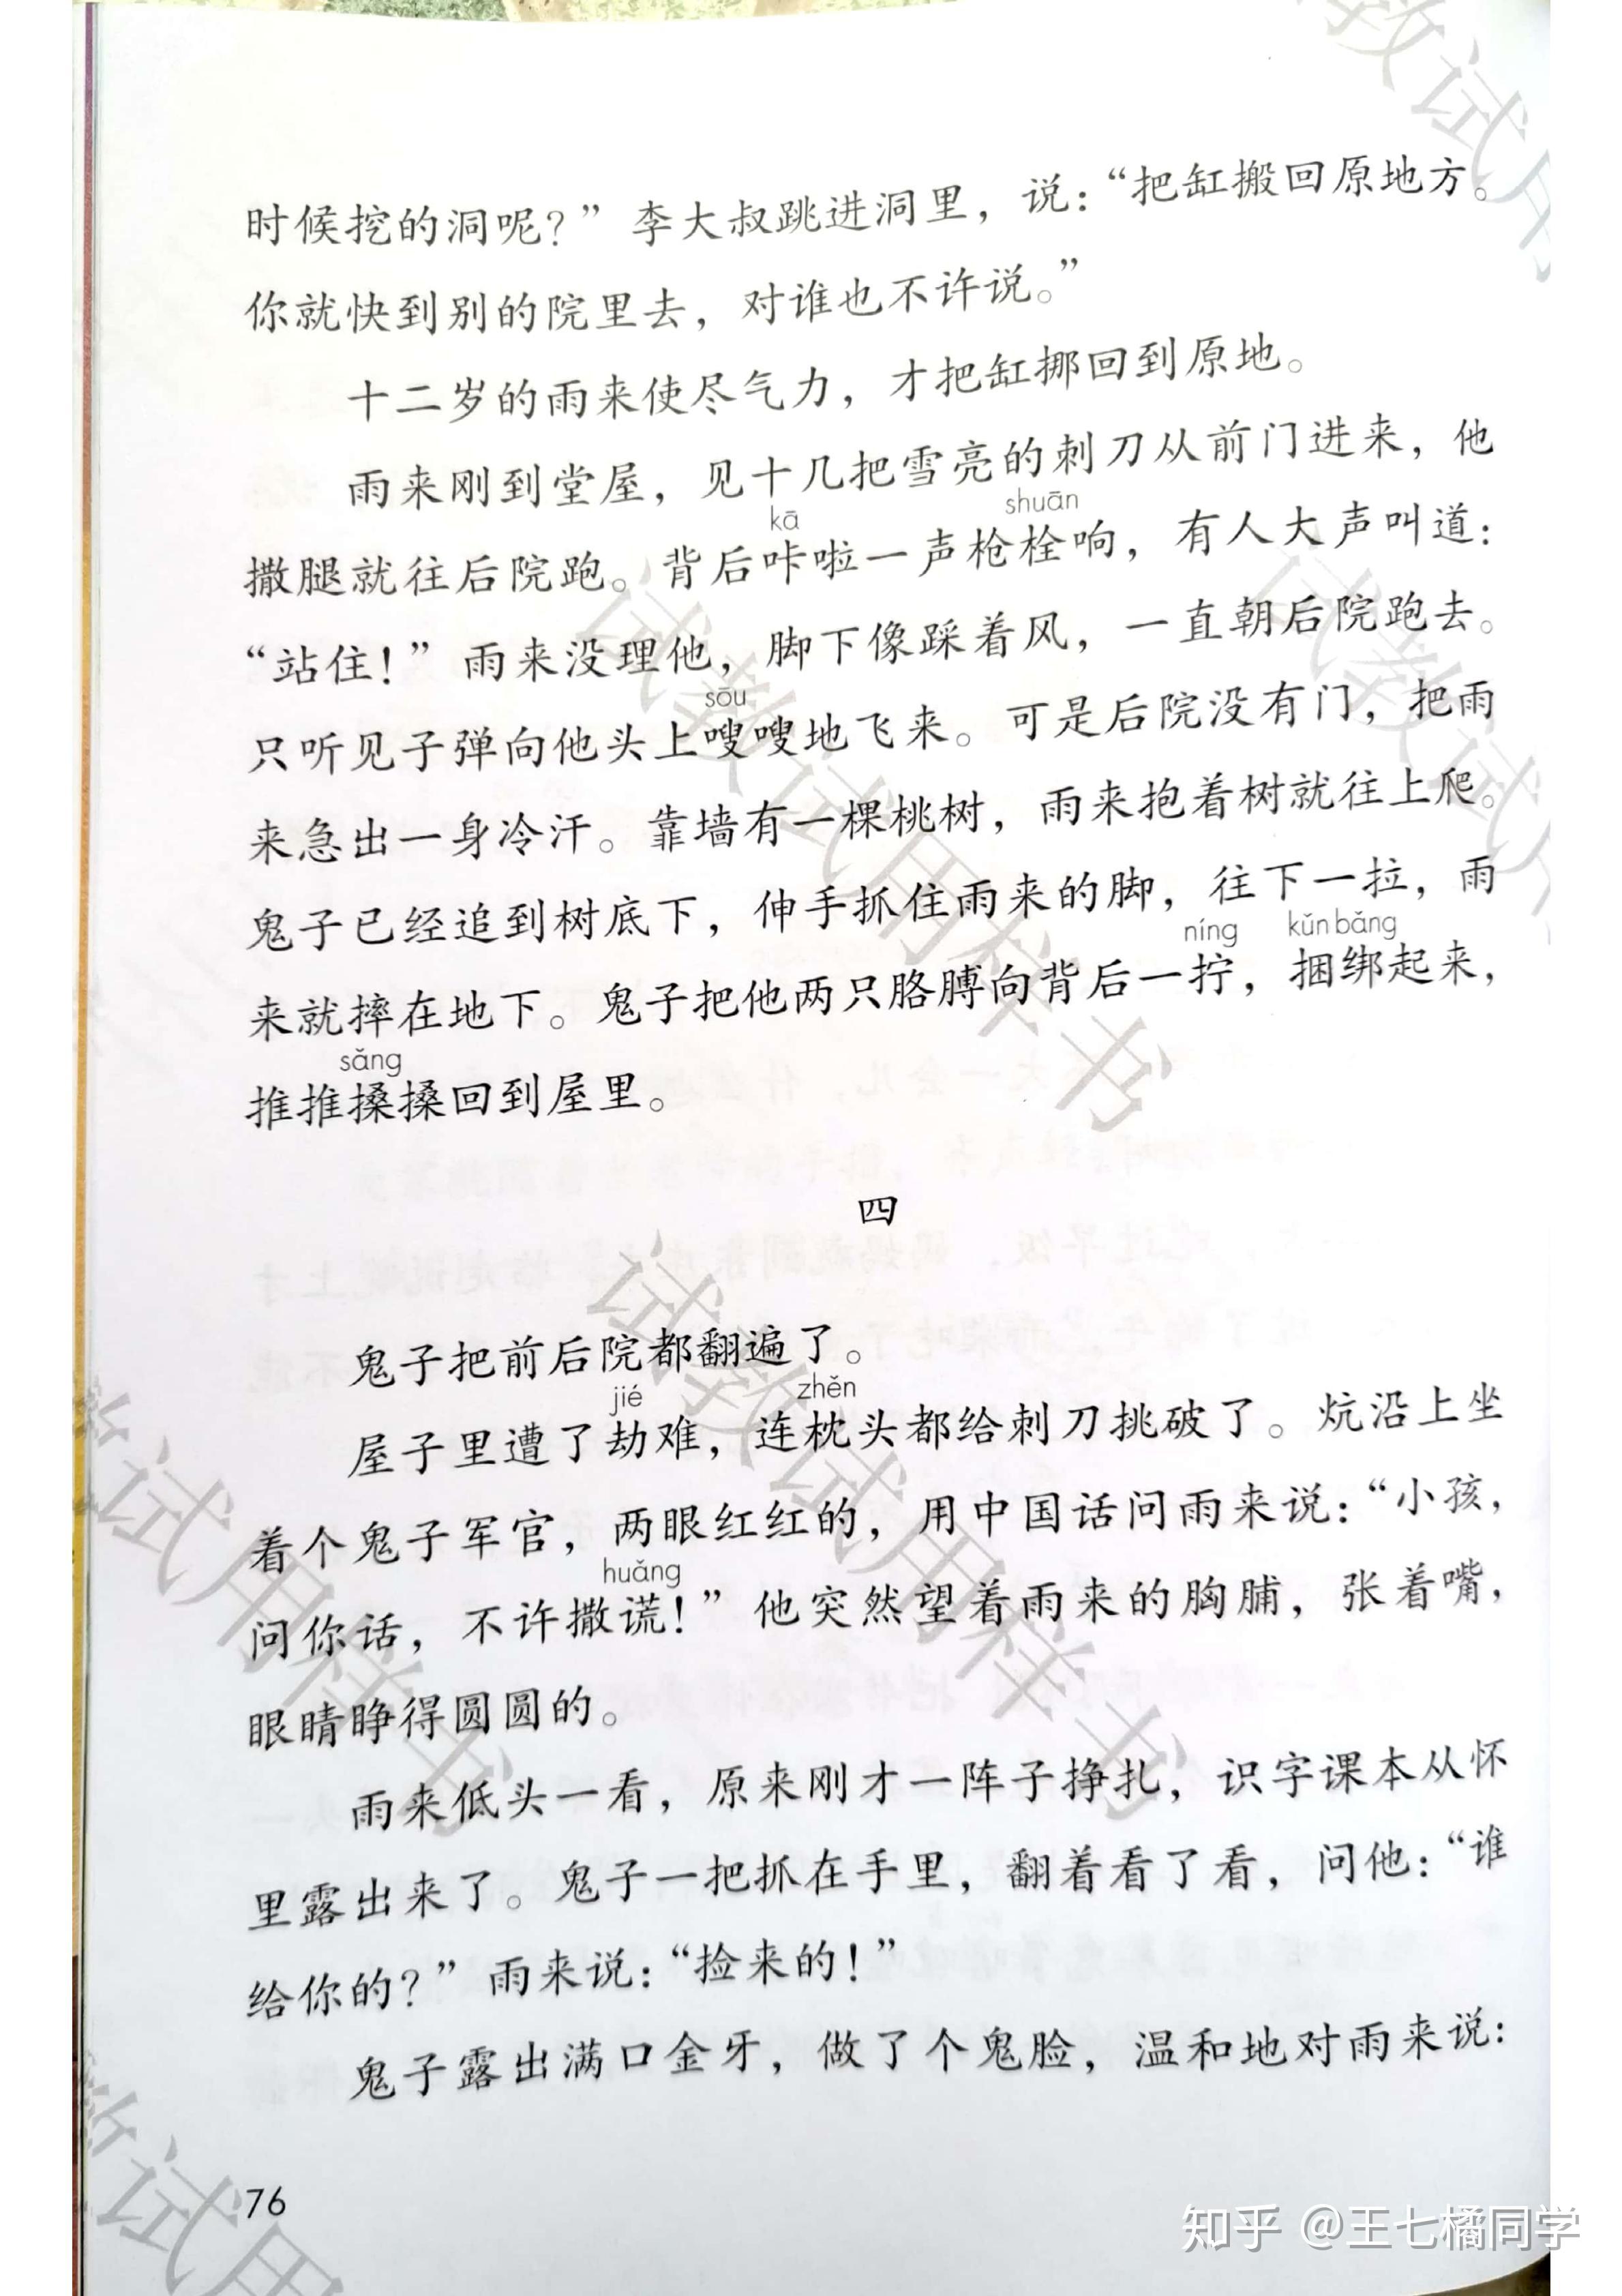 时候挖的洞呢？”李大叔跳进洞里，说：“把缸搬回原地方。
你就快到别的院里去，对谁也不许说。”
十二岁的雨来使尽气力，才把缸挪回到原地。
雨来刚到堂屋，见十几把雪亮的刺刀从前门进来，他
kā shuān
撒腿就往后院跑。背后咔啦一声枪栓响，有人大声叫道：
“站住！”雨来没理他，脚下像踩着风，一直朝后院跑去。
sōu
只听见子弹向他头上嗖嗖地飞来。可是后院没有门，把雨
来急出一身冷汗。靠墙有一棵桃树，雨来抱着树就往上爬。
鬼子已经追到树底下，伸手抓住雨来的脚，往下一拉，雨
níng kǔn bǎng
来就摔在地下。鬼子把他两只胳膊向背后一拧，捆绑起来，
sǎng
推推搡搡回到屋里。
四
鬼子把前后院都翻遍了。
jié zhěn
屋子里遭了劫难，连枕头都给刺刀挑破了。炕沿上坐
着个鬼子军官，两眼红红的，用中国话问雨来说：“小孩，
huǎng
问你话，不许撒谎！”他突然望着雨来的胸脯，张着嘴，
眼睛睁得圆圆的。
雨来低头一看，原来刚才一阵子挣扎，识字课本从怀
里露出来了。鬼子一把抓在手里，翻着看了看，问他：“谁
给你的？”雨来说：“捡来的！”
鬼子露出满口金牙，做了个鬼脸，温和地对雨来说：
76
知乎 @王七橘同学
试教试用样书
试教试用样书